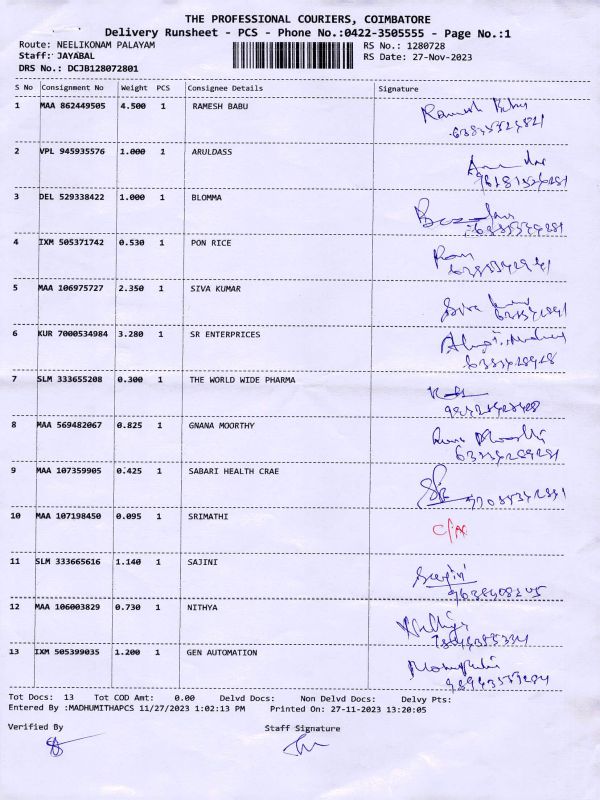 THE PROFESSIONAL COURIERS, COIMBATORE
Delivery Runsheet - PCS - Phone No.:0422-3505555 - Page No.:1
Route: NEELIKONAM PALAYAM RS No.: 1280728
Staff: JAYABAL RS Date: 27-Nov-2023
DRS No.: DCJB128072801
S No Consignment No Weight PCS Consignee Details Signature
1 MAA 862449505 4.500 1 RAMESH BABU Ramesh Babu
2 VPL 945935576 1.000 1 ARULDASS
3 DEL 529338422 1.000 1 BLOMMA
4 IXM 505371742 0.530 1 PON RICE
5 MAA 106975727 2.350 1 SIVA KUMAR Siva kumar
6 KUR 7000534984 3.280 1 SR ENTERPRICES
7 SLM 333655208 0.300 1 THE WORLD WIDE PHARMA
8 MAA 569482067 0.825 1 GNANA MOORTHY
9 MAA 107359905 0.425 1 SABARI HEALTH CRAE
10 MAA 107198450 0.095 1 SRIMATHI
11 SLM 333665616 1.140 1 SAJINI
12 MAA 106003829 0.730 1 NITHYA
13 IXM 505399035 1.200 1 GEN AUTOMATION
Tot Docs: 13 Tot COD Amt: 0.00 Delvd Docs: Non Delvd Docs: Delvy Pts:
Entered By :MADHUMITHAPCS 11/27/2023 1:02:13 PM Printed On: 27-11-2023 13:20:05
Verified By Staff Signature